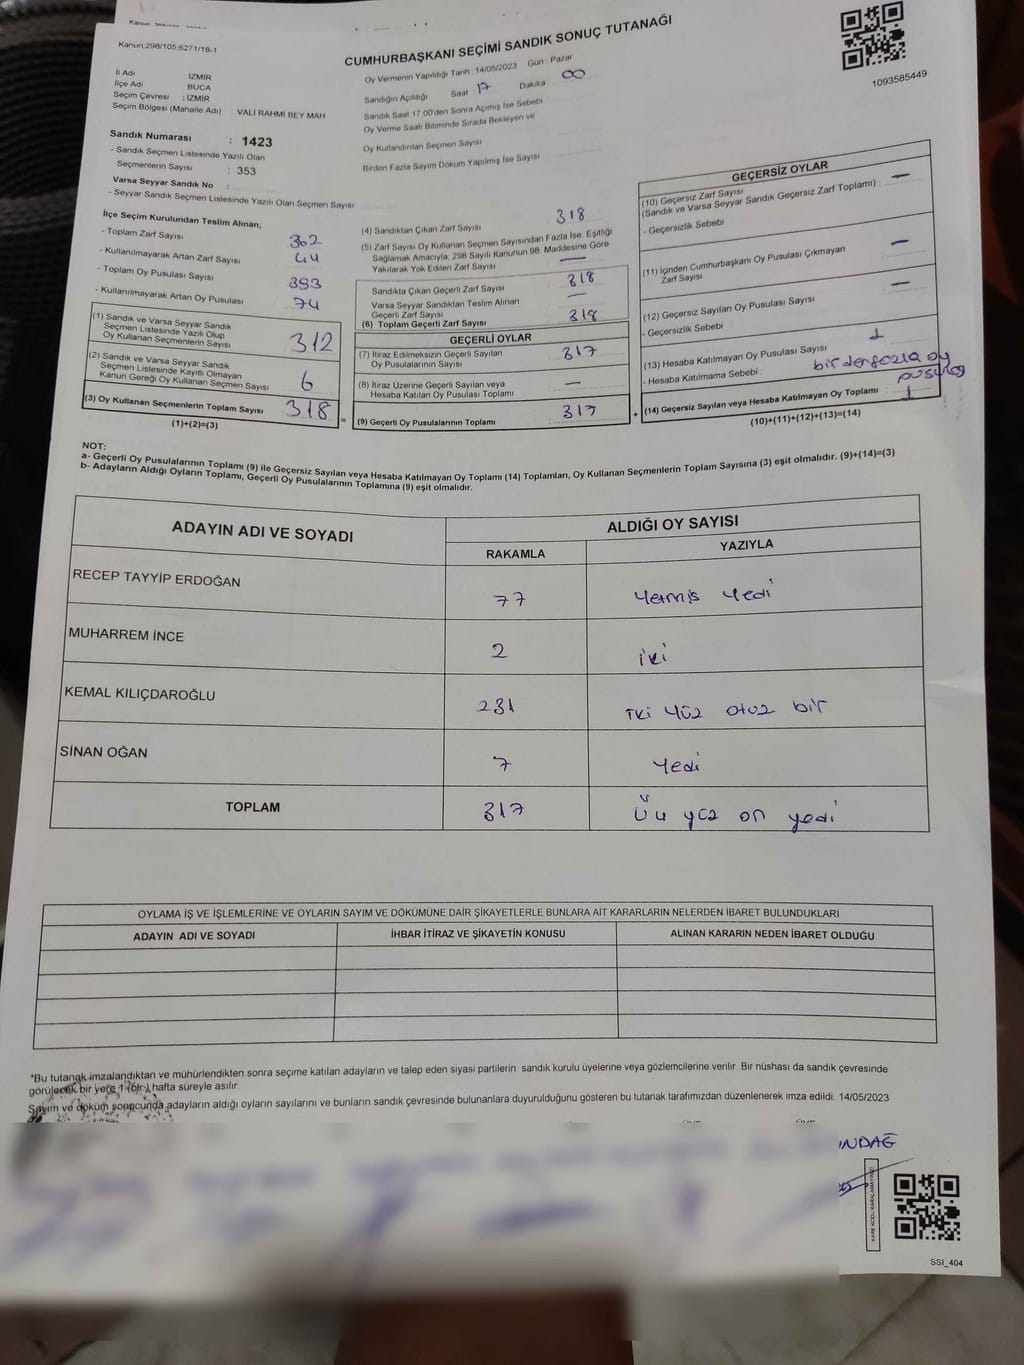 Kanun;298/105,6271/18-1
CUMHURBAŞKANI SEÇİMİ SANDIK SONUÇ TUTANAĞI
1093585449
İl Adı İZMİR
İlçe Adı BUCA
Seçim Çevresi : İZMİR
Seçim Bölgesi (Mahalle Adı) VALİ RAHMİ BEY MAH
Sandık Numarası : 1423
- Sandık Seçmen Listesinde Yazılı Olan
Seçmenlerin Sayısı : 353
Varsa Seyyar Sandık No :
- Seyyar Sandık Seçmen Listesinde Yazılı Olan Seçmen Sayısı
Oy Vermenin Yapıldığı Tarih : 14/05/2023 Gün : Pazar
Sandığın Açıldığı Saat 17 Dakika 00
Sandık Saat 17.00'den Sonra Açımış İse Sebebi
Oy Verme Saati Bitiminde Sırada Bekleyen ve
Oy Kullandırılan Seçmen Sayısı
Birden Fazla Sayım Döküm Yapılmış İse Sayısı
İlçe Seçim Kurulundan Teslim Alınan;
- Toplam Zarf Sayısı 362
- Kullanılmayarak Artan Zarf Sayısı 44
- Toplam Oy Pusulası Sayısı 393
- Kullanılmayarak Artan Oy Pusulası 74
(1) Sandık ve Varsa Seyyar Sandık
Seçmen Listesinde Yazılı Olup
Oy Kullanan Seçmenlerin Sayısı 312
(2) Sandık ve Varsa Seyyar Sandık
Seçmen Listesinde Kayıtlı Olmayan
Kanun Gereği Oy Kullanan Seçmen Sayısı 6
(3) Oy Kullanan Seçmenlerin Toplam Sayısı : 318 =
(1)+(2)=(3)
(4) Sandıktan Çıkan Zarf Sayısı 318
(5) Zarf Sayısı Oy Kullanan Seçmen Sayısından Fazla İse, Eşitliği
Sağlamak Amacıyla, 298 Sayılı Kanunun 98. Maddesine Göre
Yakılarak Yok Edilen Zarf Sayısı —
Sandıkta Çıkan Geçerli Zarf Sayısı 318
Varsa Seyyar Sandıktan Teslim Alınan
Geçerli Zarf Sayısı —
(6) Toplam Geçerli Zarf Sayısı 318
GEÇERLİ OYLAR
(7) İtiraz Edilmeksizin Geçerli Sayılan
Oy Pusulalarının Sayısı 317
(8) İtiraz Üzerine Geçerli Sayılan veya
Hesaba Katılan Oy Pusulası Toplamı —
(9) Geçerli Oy Pusulalarının Toplamı 317 +
GEÇERSİZ OYLAR
(10) Geçersiz Zarf Sayısı
(Sandık ve Varsa Seyyar Sandık Geçersiz Zarf Toplamı) : —
- Geçersizlik Sebebi
(11) İçinden Cumhurbaşkanı Oy Pusulası Çıkmayan
Zarf Sayısı —
(12) Geçersiz Sayılan Oy Pusulası Sayısı —
- Geçersizlik Sebebi :
(13) Hesaba Katılmayan Oy Pusulası Sayısı : 1
- Hesaba Katılmama Sebebi : birden fazla oy
(14) Geçersiz Sayılan veya Hesaba Katılmayan Oy Toplamı : 1
(10)+(11)+(12)+(13)=(14)
NOT:
a- Geçerli Oy Pusulalarının Toplamı (9) ile Geçersiz Sayılan veya Hesaba Katılmayan Oy Toplamı (14) Toplamları, Oy Kullanan Seçmenlerin Toplam Sayısına (3) eşit olmalıdır. (9)+(14)=(3)
b- Adayların Aldığı Oyların Toplamı, Geçerli Oy Pusulalarının Toplamına (9) eşit olmalıdır.
ADAYIN ADI VE SOYADI ALDIĞI OY SAYISI
RAKAMLA YAZIYLA
RECEP TAYYİP ERDOĞAN 77 Yetmiş Yedi
MUHARREM İNCE 2 iki
KEMAL KILIÇDAROĞLU 231 İki Yüz otuz bir
SİNAN OĞAN 7 Yedi
TOPLAM 317 Üç yüz on yedi
OYLAMA İŞ VE İŞLEMLERİNE VE OYLARIN SAYIM VE DÖKÜMÜNE DAİR ŞİKAYETLERLE BUNLARA AİT KARARLARIN NELERDEN İBARET BULUNDUKLARI
ADAYIN ADI VE SOYADI İHBAR İTİRAZ VE ŞİKAYETİN KONUSU ALINAN KARARIN NEDEN İBARET OLDUĞU
*Bu tutanak imzalandıktan ve mühürlendikten sonra seçime katılan adayların ve talep eden siyasi partilerin sandık kurulu üyelerine veya gözlemcilerine verilir. Bir nüshası da sandık çevresinde
görülecek bir yere 1 (bir) hafta süreyle asılır.
Sayım ve döküm sonucunda adayların aldığı oyların sayılarını ve bunların sandık çevresinde bulunanlara duyurulduğunu gösteren bu tutanak tarafımızdan düzenlenerek imza edildi. 14/05/2023
INDAĞ
SSI_404